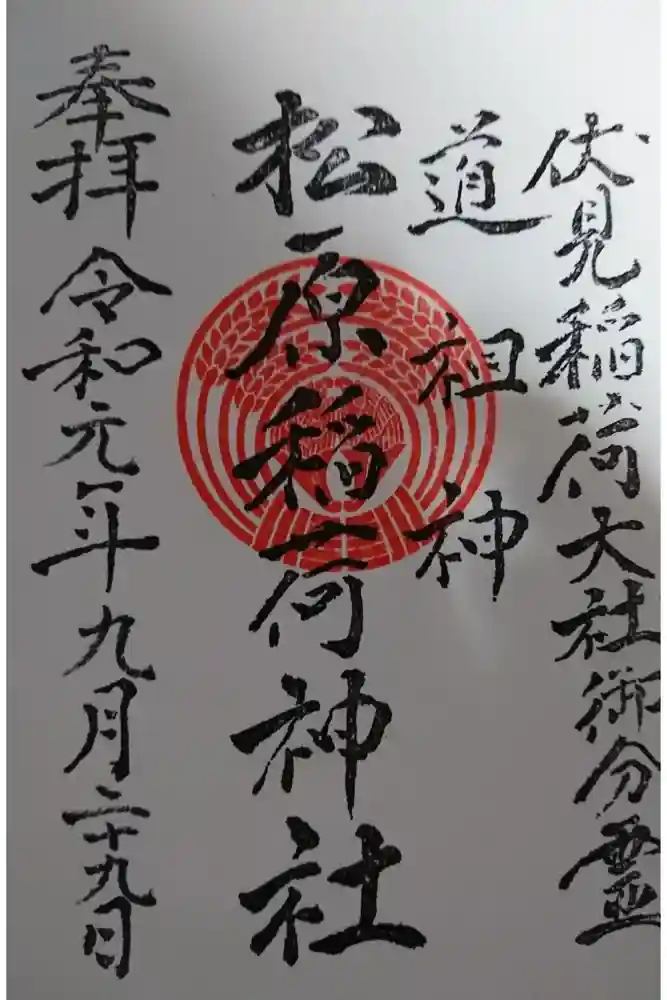 伏見稲荷大社御分霊
道祖神
松原稲荷神社
奉拝 令和元年九月二十九日